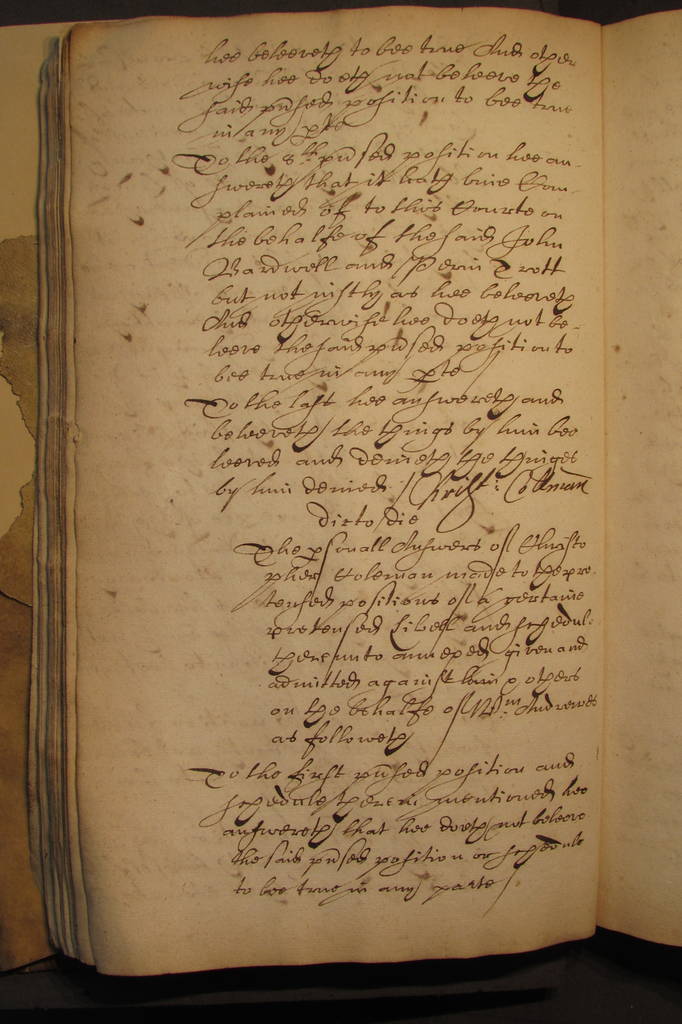 hee beleeveth to bee true And other
wise hee doeth not beleeve the
said prtsed position to bee true
in any pte
To the 8th prtsed position hee an-
swereth that it hath bine Com-
plained of to this Courte on
the behalfe of the said John
Bardwell and Trott
but not iustly as hee beleeveth
And otherwise hee doeth not be-
leeve the said prtsed position to
bee true in any pte
To the last hee answereth and
beleeveth the things by him bee
leeved and denieth the thinges
by him denied / Christ: Collman
dicto die
The psonall Answers of Christo
pher Coleman made to the pre-
tensed positions of a certaine
pretensed Libell and schedule
thereunto annexed given and
admitted against him & others
on the behalfe of Wm: Andrewes
as followeth
To the first prtsed position and
schedule therein mentioned hee
answereth that hee doeth not beleeve
the said prtsed position or schedule
to bee true in any parte /